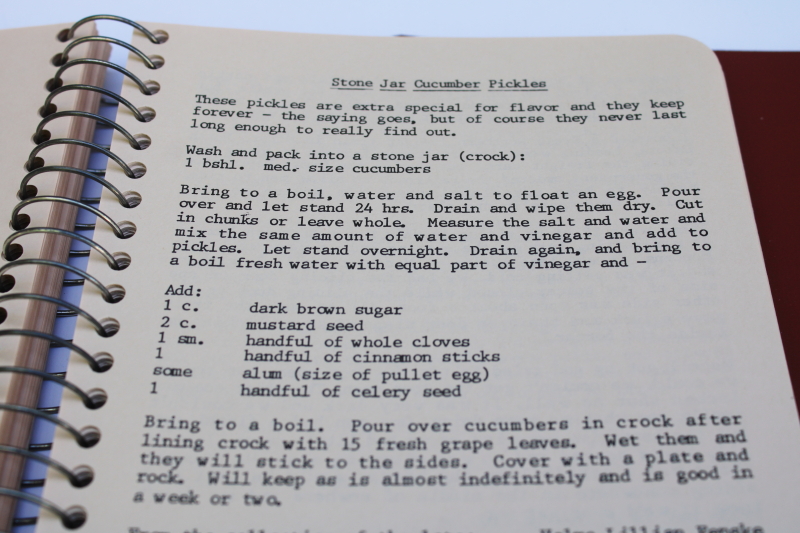 Stone Jar Cucumber Pickles
These pickles are extra special for flavor and they keep
forever - the saying goes, but of course they never last
long enough to really find out.
Wash and pack into a stone jar (crock):
1 bshl. med. size cucumbers
Bring to a boil, water and salt to float an egg. Pour
over and let stand 24 hrs. Drain and wipe them dry. Cut
in chunks or leave whole. Measure the salt and water and
mix the same amount of water and vinegar and add to
pickles. Let stand overnight. Drain again, and bring to
a boil fresh water with equal part of vinegar and -
Add:
1 c. dark brown sugar
2 c. mustard seed
1 sm. handful of whole cloves
1 handful of cinnamon sticks
some alum (size of pullet egg)
1 handful of celery seed
Bring to a boil. Pour over cucumbers in crock after
lining crock with 15 fresh grape leaves. Wet them and
they will stick to the sides. Cover with a plate and
rock. Will keep as is almost indefinitely and is good in
a week or two.